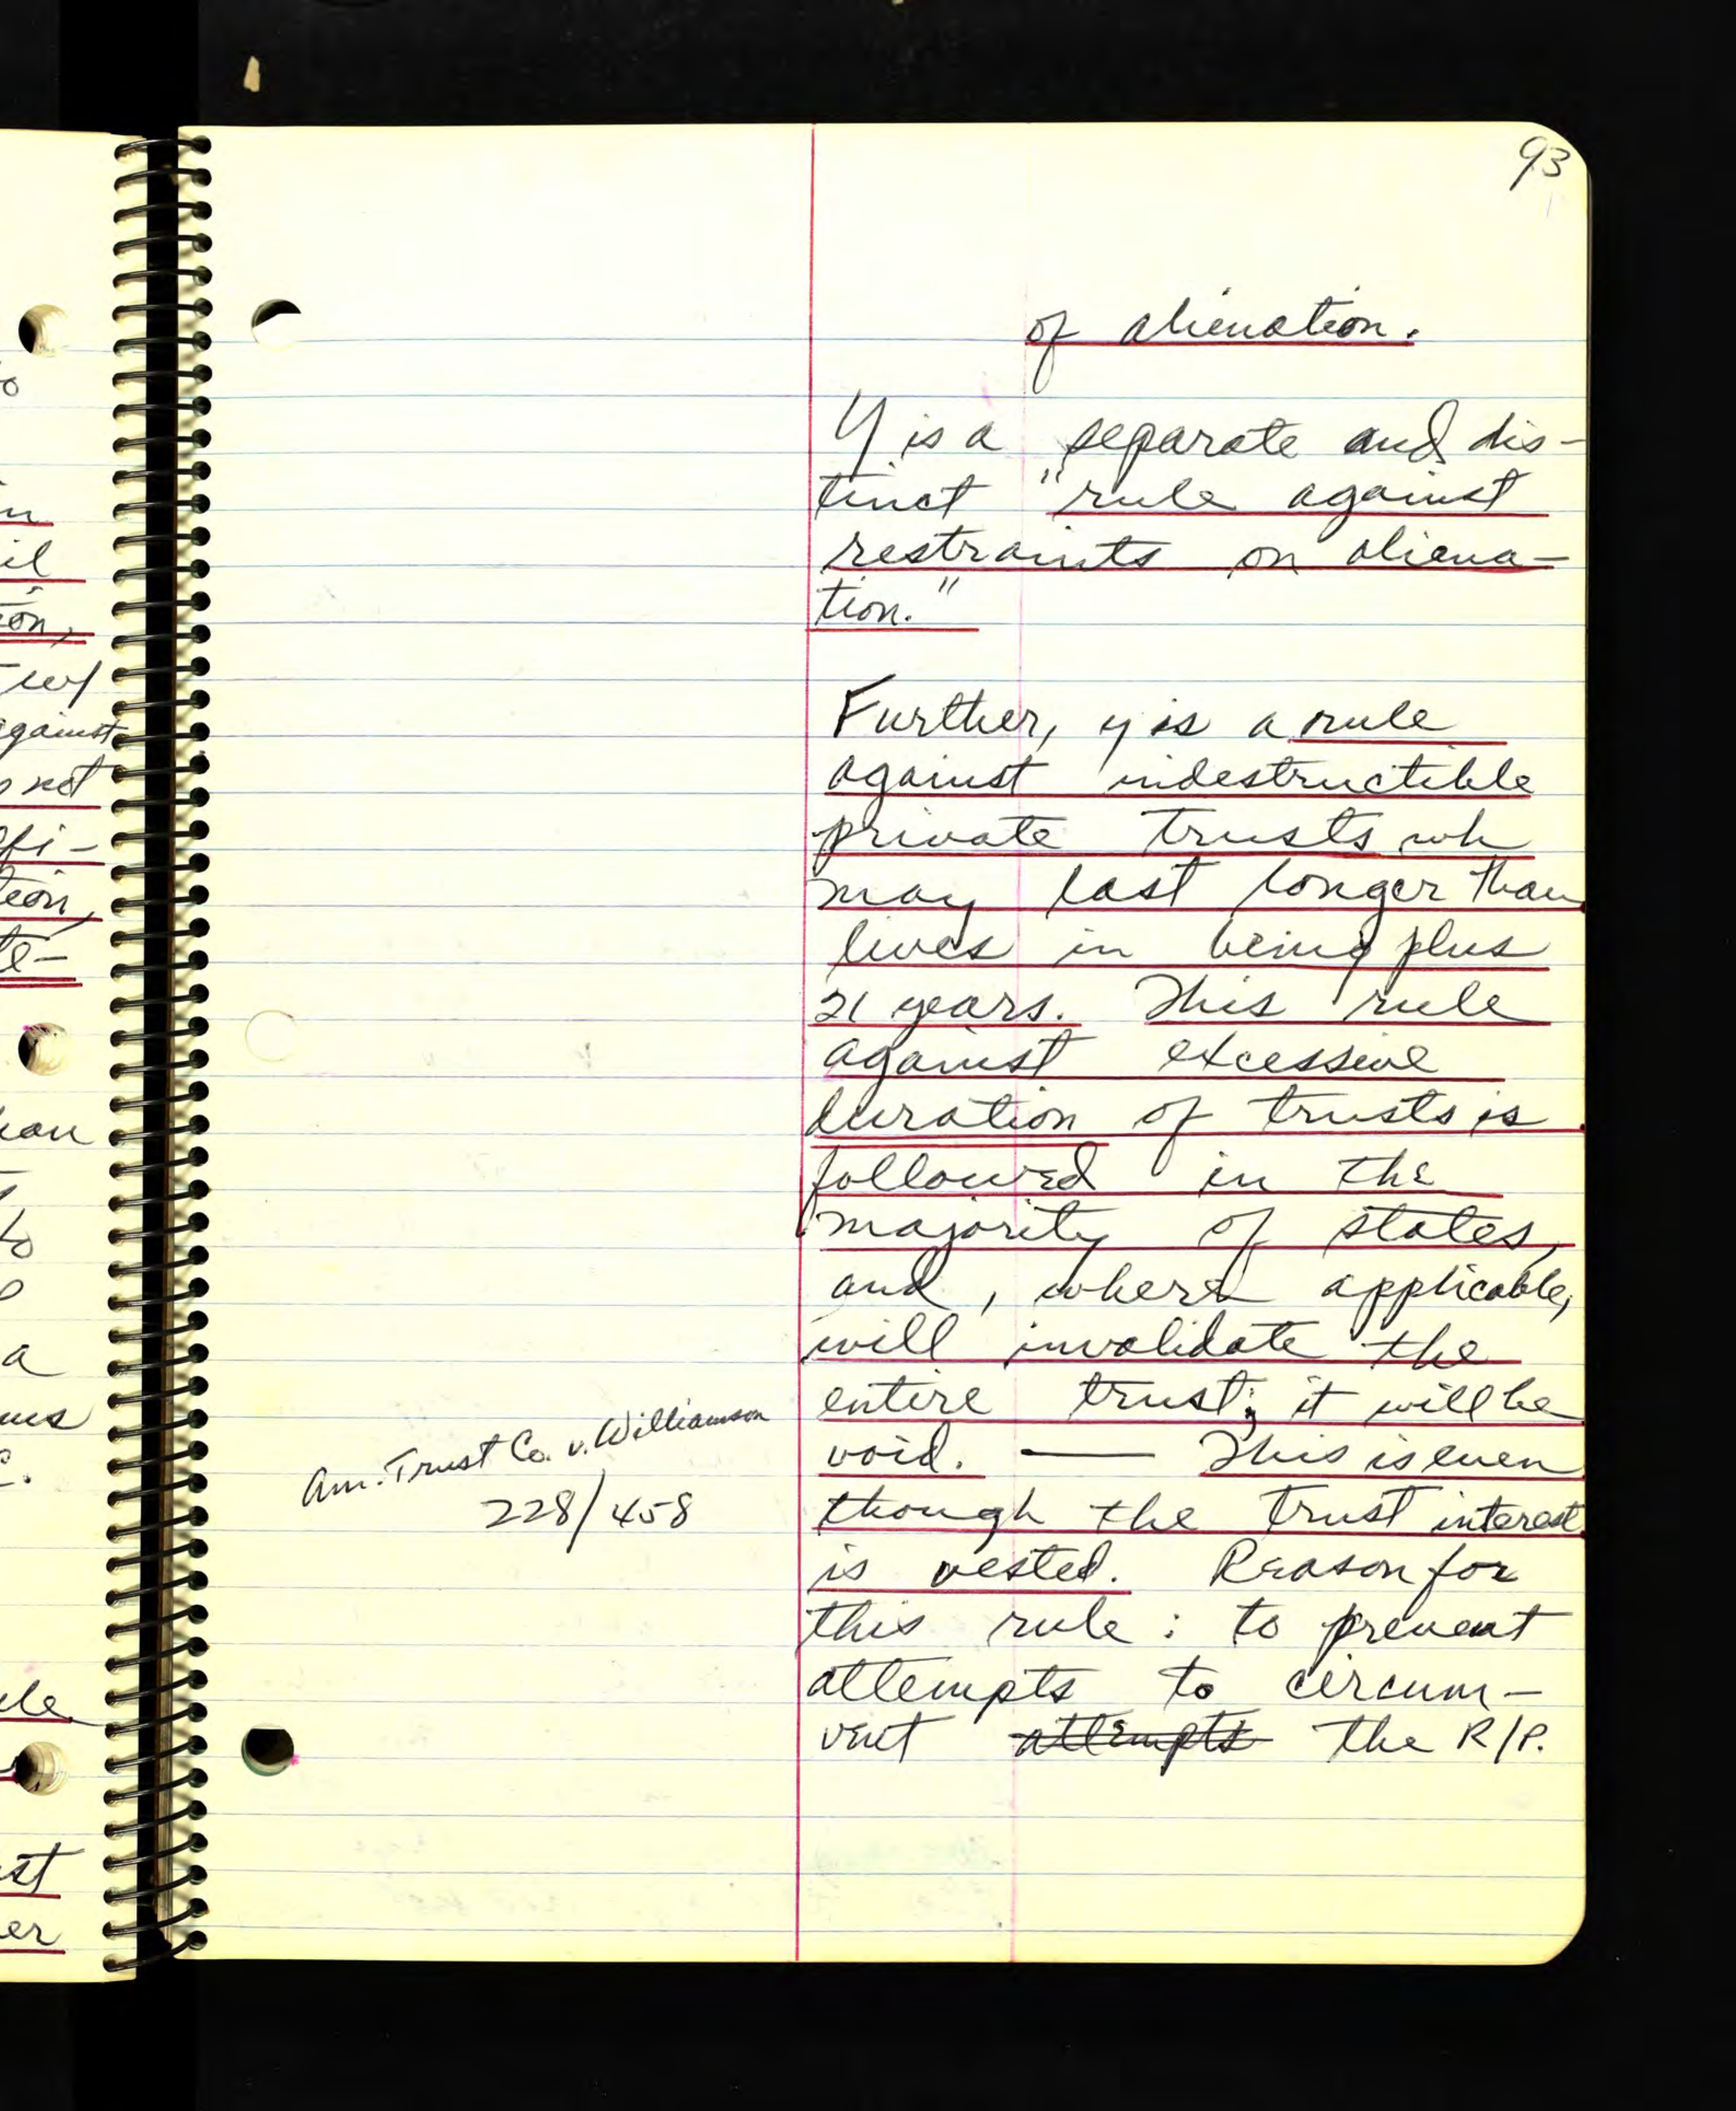 93
of alienation.
Y is a separate and dis-
tinct "rule against
restraints on aliena-
tion."
Further, y is a rule
against indestructible
private trusts wh
may last longer than
lives in being plus
21 years. This rule
against excessive
duration of trusts is
followed in the
majority of states,
and, where applicable,
will invalidate the
entire trust; it will be
void. — This is even
though the trust interest
is vested. Reason for
this rule: to prevent
attempts to circum-
vent attempts the R/P.
Am. Trust Co. v. Williamson
228/458
o
n
il
on,
w/
against
not
fi-
tion,
te-
to
a
ule
st
er